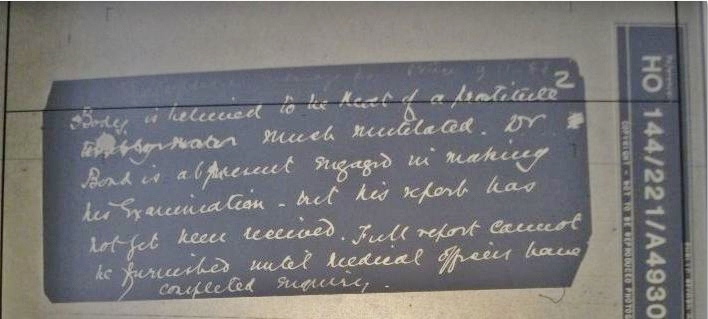 2
Body is believed to be that of a prostitute
much mutilated. Dr
Bond is at present engaged in making
his Examination - but his report has
not yet been received. Full report cannot
be furnished until medical officers have
completed enquiry.
Reference:-
HO 144/221/A4930
COPYRIGHT - NOT TO BE REPRODUCED PHOTO